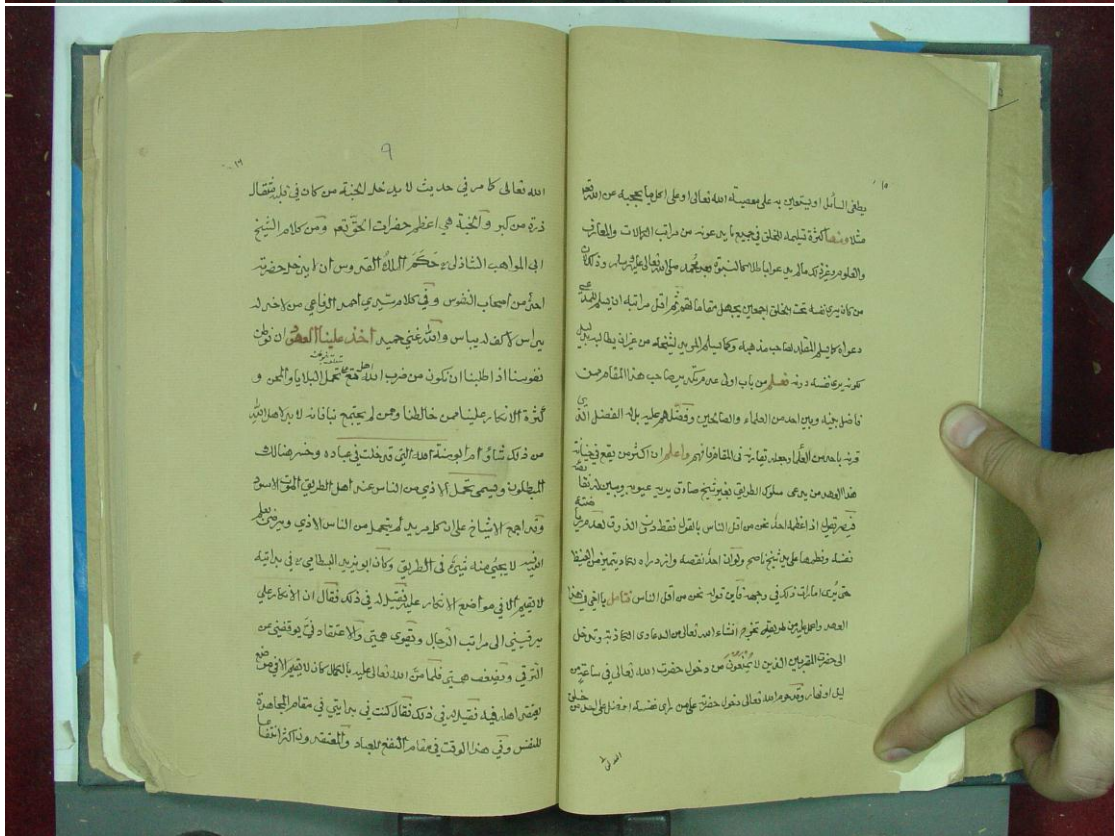 ١٥
يطغى السائل او يستعين به على معصية الله تعالى او على اكل ما يحجبه عن الله تعالى
مثلا ومنها كثرة تسليمه للخلق في جميع ما يدعونه من مراتب الكمالات والمعارف
والعلوم وغير ذلك مالم يدعوا باطلا كالنبوة بعد محمد صلى الله تعالى عليه وسلم وذلك لان
من كان يرى نفسه تحت الخلق اجمعين يجهل مقاماتهم ثم اقل مراتبه ان يسلم للمدعي
دعواه كما يسلم المقلد لصاحب مذهبه وكما يسلم المريد لشيخه من غير ان يطالبه بدليل
كونه يرى نفسه دونه فعلم من باب اولى عدم تكدير صاحب هذا المقام ممن
فاضل بينه وبين احد من العلماء والصالحين وفضلهم عليه بل له الفضل الذي
قرنه باحد من العلماء وجعله يقاربه في المقام فافهم واعلم ان اكثر من يقع في خيانة
هذا العهد من يدعي سلوك الطريق بغير شيخ صادق يريه عيوبه ويبين له نقائصه
فيصير يقول اذا عظمه احد نحن من اقل الناس بالقول فقط دون الذوق لعدم رياضة
نفسه وفطمها على يد شيخ ناصح ولو ان احدا نقصه وازدراه يكاد يتميز من الغيظ
حتى يرى امارات ذلك في وجهه فاين قوله نحن من اقل الناس فتأمل يا اخي في هذا
العهد واعمل به تخرج انشاء الله تعالى من الدعاوى الكاذبة وتدخل
الى حضرة المقربين الذين لا يمنعون من دخول حضرت الله تعالى في ساعة من
ليل او نهار وقد حرم الله تعالى دخول حضرته على من يرى نفسه افضل على احد من خلق
١٦
٩
الله تعالى كما مر في حديث لا يدخل الجنة من كان في قلبه مثقال
ذرة من كبر والجنة هي اعظم حضرات الحق تعم ومن كلام الشيخ
ابي المواهب الشاذلي حكم الملك القدوس ان لا يدخل حضرته
احد من اصحاب النفوس وفي كلام سيدي احمد الرفاعي من لاخر له
براس لا كف له يباس والله غني حميد اخذ علينا العهود ان نوطن
نفوسنا اذا طلبنا ان نكون من ضرب اهل الله تعم على تحمل البلايا والمحن و
كثرة الانكار علينا ممن خالطنا ومن لم يجتمع بنا فانه لا بد لاهل الله
من ذلك شاؤا ام ابو سنة الله التي قد خلت في عباده وخسر هنالك
المبطلون ويسمى تحمل الاذى من الناس عند اهل الطريق الموت الاسود
وقد اجمع الاشياخ على ان كل مريد لم يتحمل من الناس الاذى ويرضى بعلم
الله فيه لا يجئ منه شئ في الطريق وكان ابو يزيد البسطامي في بدايته
لا يقيم الا في مواضع الانكار عليه فقيل له في ذلك فقال ان الانكار علي
يرقيني الى مراتب الرجال ويقوي همتي والاعتقاد في يوقفني عن
الترقي ويضعف همتي فلما من الله تعالى عليه بالكمال كان لا يقيم الا في موضع
يعتقد اهله فيه فقيل له في ذلك فقال كنت في بدايتي في مقام المجاهدة
للنفس وفي هذا الوقت في مقام النفع للعباد والمعتقدون اكثر انتفاعا